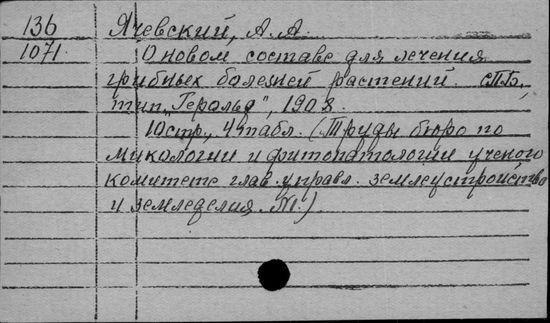 136 Ячевский, А. А.
1071. О новом составе для лечения
грибных болезней растений. СПБ,
тип. "Геральд", 1908.
10 стр., 4 табл. (Труды бюро по
микологии и фитопатологии ученого
комитета глав. управл. землеустройства
и земледелия.